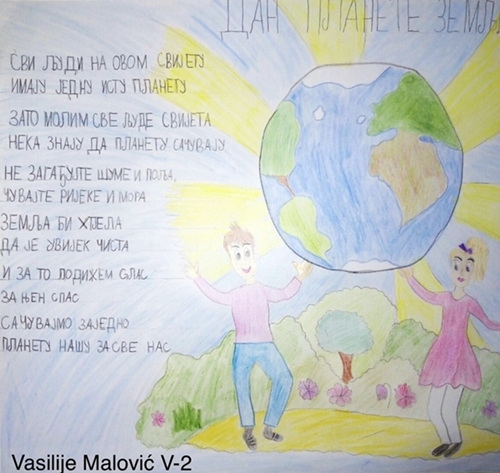 ДАН ПЛАНЕТЕ ЗЕМЉЕ
СВИ ЉУДИ НА ОВОМ СВИЈЕТУ
ИМАЈУ ЈЕДНУ ИСТУ ПЛАНЕТУ
ЗАТО МОЛИМ СВЕ ЉУДЕ СВИЈЕТА
НЕКА ЗНАЈУ ДА ПЛАНЕТУ САЧУВАЈУ
НЕ ЗАГАЂУЈТЕ ШУМЕ И ПОЉА,
ЧУВАЈТЕ РИЈЕКЕ И МОРА
ЗЕМЉА БИ ХТЈЕЛА
ДА ЈЕ УВИЈЕК ЧИСТА
И ЗА ТО ПОДИЖЕМ ГЛАС
ЗА ЊЕН СПАС
САЧУВАЈМО ЗАЈЕДНО
ПЛАНЕТУ НАШУ ЗА СВЕ НАС
Vasilije Malović V-2